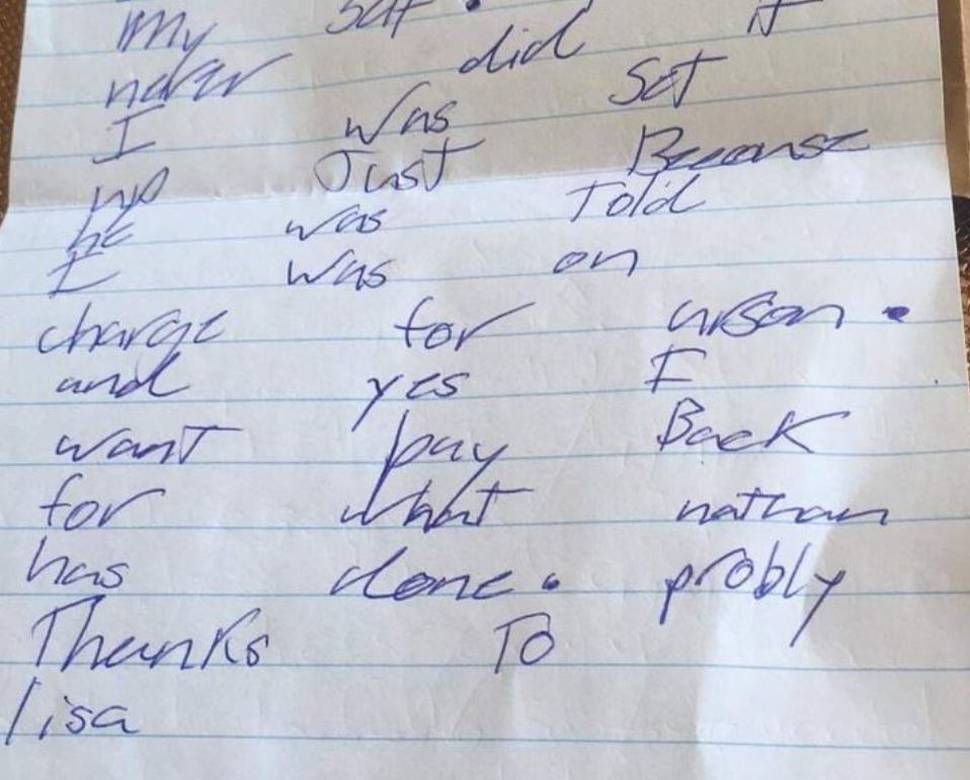 My Saf. if
never did
I was Set
up Just Because
he was Told
I was on
charge for arson.
and yes I
want pay Back
for what nathan
has done. probly
Thanks To
lisa